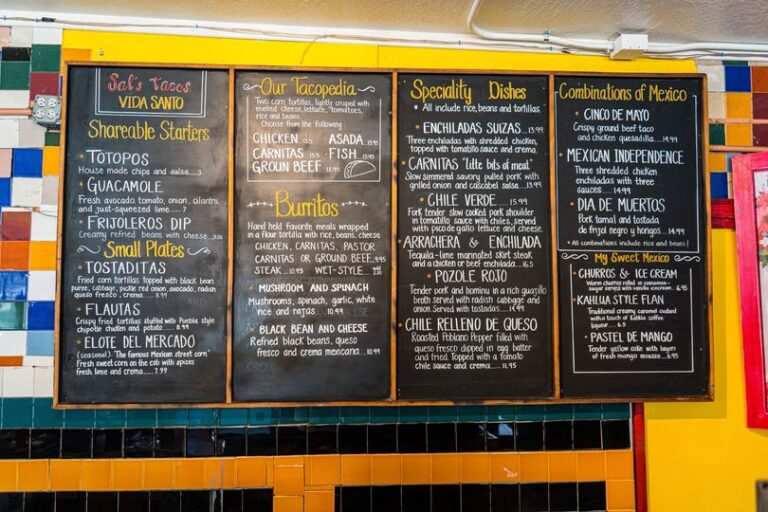 Sal's Tacos
VIDA SANTO
Shareable Starters
TOTOPOS
House made chips and salsa.....3
GUACAMOLE
Fresh avocado, tomato, onion, cilantro
and just-squeezed lime.....7
FRIJOLEROS DIP
Creamy refried beans with cheese...3.50
Small Plates
TOSTADITAS
Fried corn tortillas topped with black bean
puree, cabbage, pickle red onion, avocado, radish
queso fresco, crema.....8.99
FLAUTAS
Crispy fried tortillas stuffed with Puebla style
chipotle chicken and potato.....8.99
ELOTE DEL MERCADO
(seasonal) "The famous Mexican street corn"
Fresh sweet corn on the cob with spices
fresh lime and crema.....7.99
Our Tacopedia
Two corn tortillas, lightly crisped with
melted cheese, lettuce, tomatoes,
rice and beans.
Choose from the following:
CHICKEN ASADA
CARNITAS FISH
GROUN BEEF
Burritos
Hand held favorite meals wrapped
in a flour tortilla with rice, beans, cheese
CHICKEN, CARNITAS, PASTOR
CARNITAS OR GROUND BEEF. 9.95
STEAK.....10.95 WET-STYLE...
MUSHROOM AND SPINACH
Mushrooms, spinach, garlic, white
rice and rajas.....10.99
BLACK BEAN AND CHEESE
Refried black beans, queso
fresco and crema mexicana...10.99
Speciality Dishes
All include rice, beans and tortillas
ENCHILADAS SUIZAS...13.99
Three enchiladas with shredded chicken,
topped with tomatillo sauce and crema.
CARNITAS "little bits of meat"
Slow simmered savory pulled pork with
grilled onion and cascabel salsa...13.95
CHILE VERDE.....15.95
Fork tender slow cooked pork shoulder
in tomatillo sauce with chiles, served
with pico de gallo lettuce and cheese.
ARRACHERA & ENCHILADA
Tequila-lime marinated skirt steak
and a chicken or beef enchilada.....15.95
POZOLE ROJO
Tender pork and hominy in a rich guajillo
broth served with radish cabbage and
onion. Served with tostadas.....14.99
CHILE RELLENO DE QUESO
Roasted Poblano Pepper filled with
queso fresco dipped in egg batter
and fried. Topped with a tomato
chile sauce and crema.....11.95
Combinations of Mexico
CINCO DE MAYO
Crispy ground beef taco
and chicken quesadilla.....14.99
MEXICAN INDEPENDENCE
Three shredded chicken
enchiladas with three
sauces.....14.99
DIA DE MUERTOS
Pork tamal and tostada
de frijol negro y hongos...14.99
All combinations include rice and beans!
My Sweet Mexico
CHURROS & ICE CREAM
Warm churros rolled in cinnamon-
sugar served with vanilla ice cream.
KAHLUA STYLE FLAN
Traditional creamy caramel custard
with a touch of Kahlua coffee
liqueur.....6.5
PASTEL DE MANGO
Tender yellow cake with layers
of fresh mango mousse.....6.95